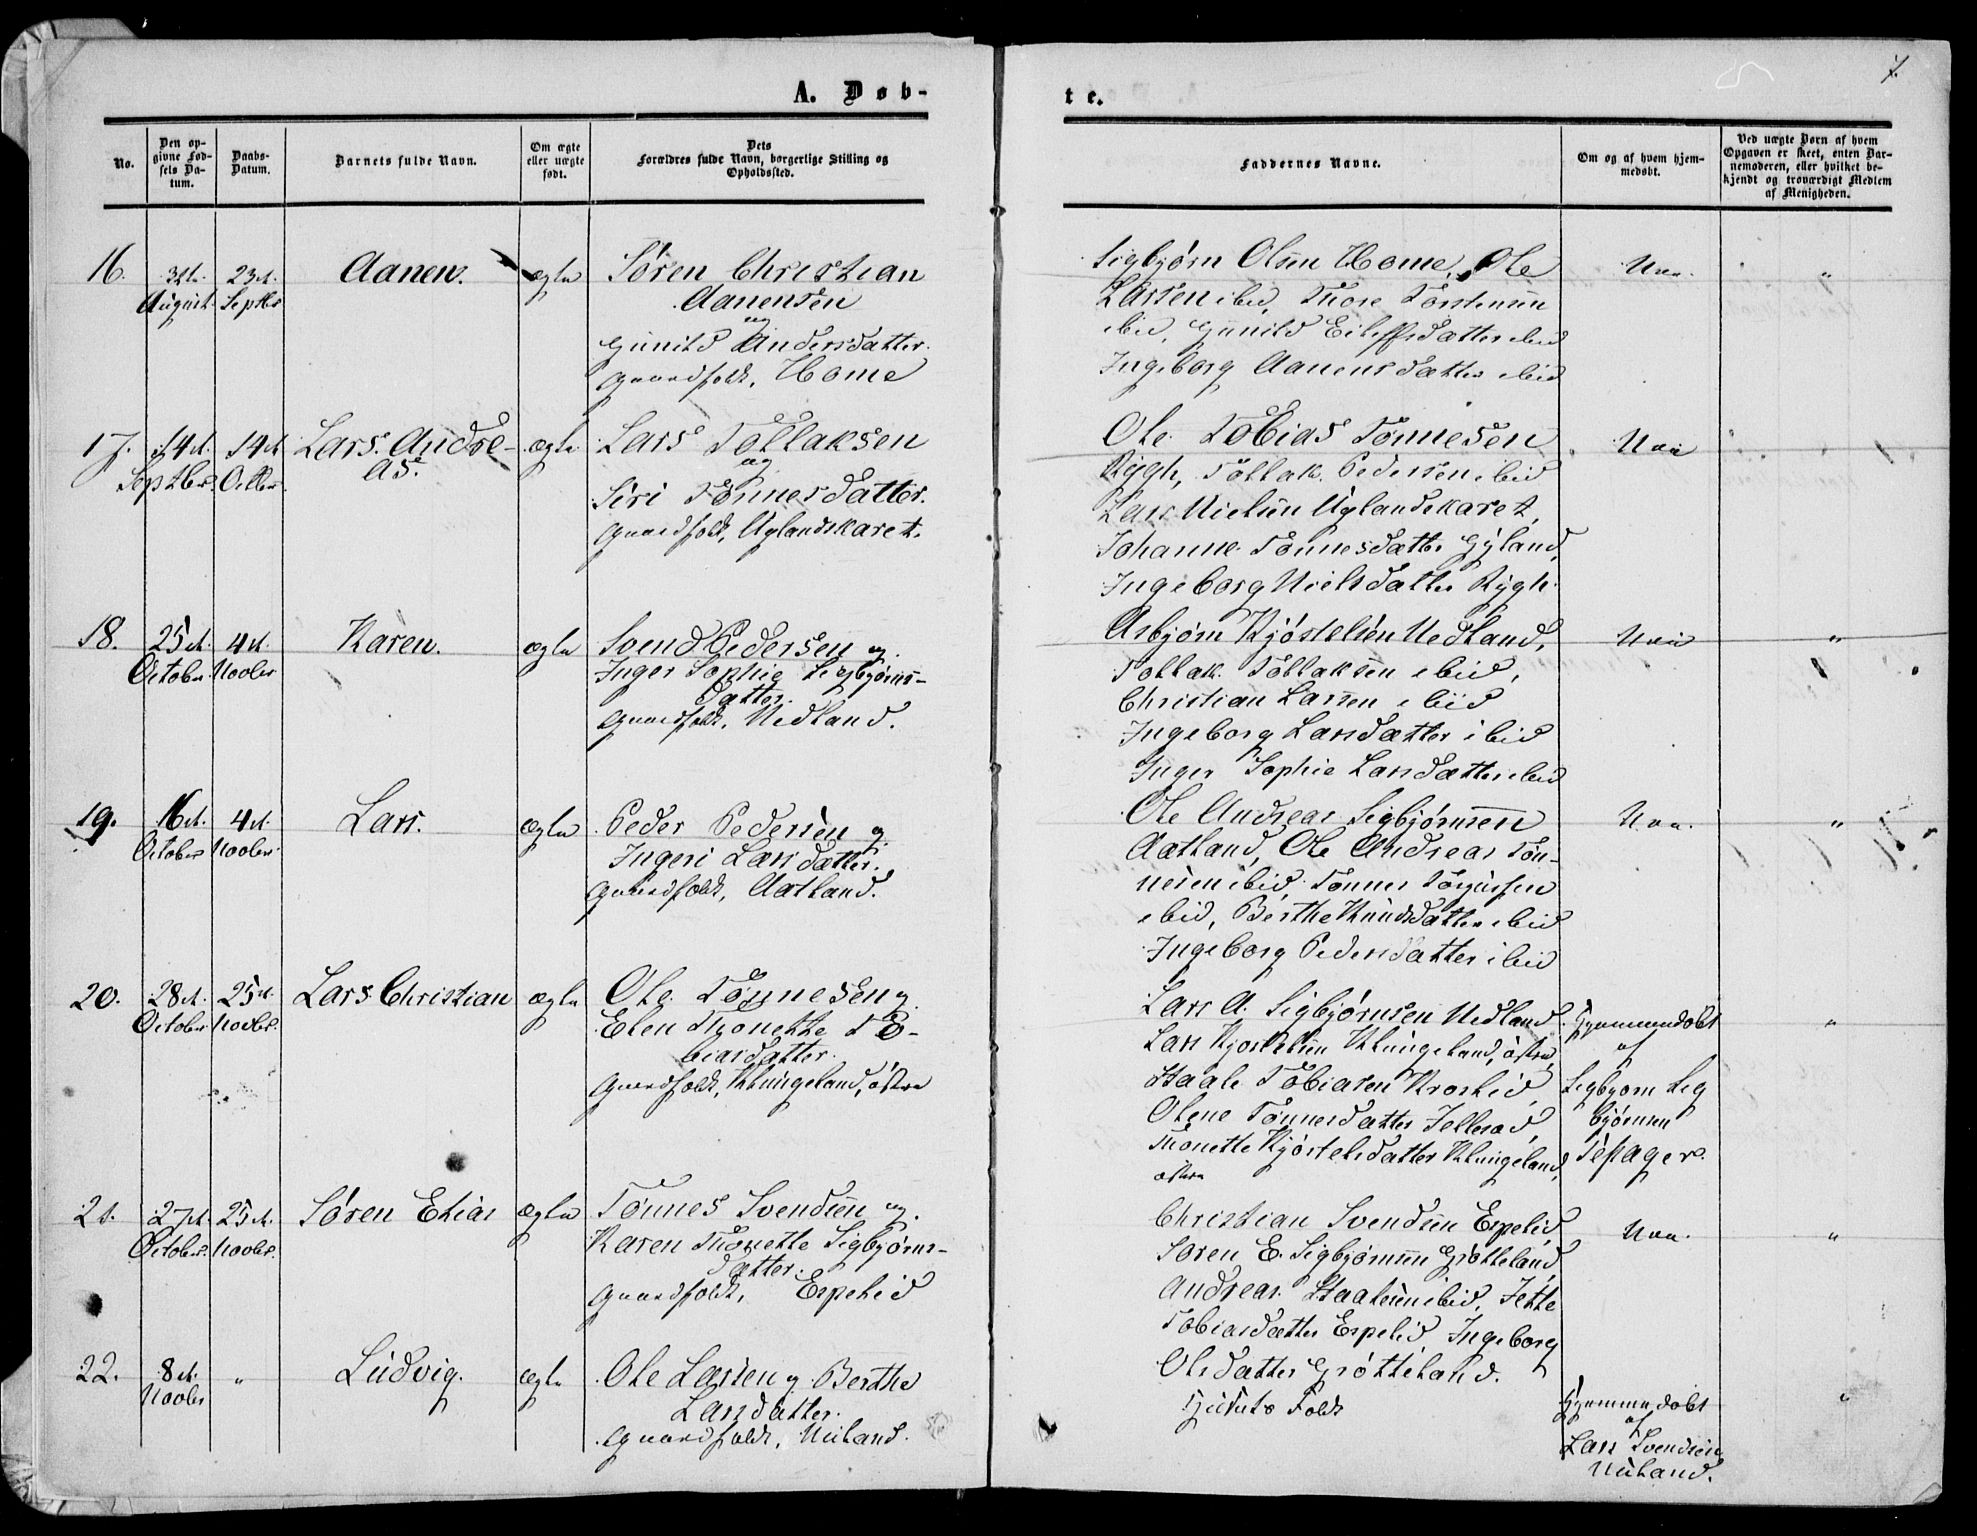 A. Døb-
te.
7.
No.
Den op-
givne Fød-
sels Da-
tum.
Daabs-
Datum.
Barnets fulde Navn.
Om ægte
eller uægte
født.
Dets
Forældres fulde Navn, borgerlige Stilling og
Opholdssted.
Faddernes Navne.
Om og af hvem hjem-
medøbt.
Ved uægte Børn af hvem
Opgaven er skeet, enten Bar-
nemoderen, eller hvilket be-
kjendt og troværdigt Medlem
af Menigheden.
16.
August
23d.
Septbr
Aanen.
ægte
Søren Christian
Aanensen
og
Gunild Andersdatter.
Gaardfolk, Home
Sigbjørn Olsen Home, Ole
Larsen ibid, Thore Torstensen
ibid, Gunild Eileffsdatter ibid
Ingeborg Aanensdatter ibid
"
17.
14d.
Septbr.
14d
Octbr.
Lars Andre-
as.
ægte
Lars Tollaksen
og
Siri Tønnesdatter.
Gaardfolk, Uglandskaret.
Ole Tobias Tønnesen
Rygh, Tollak Pedersen ibid
Lars Nielsen Uglandskaret,
Johanne Tønnesdatter Gyland,
Ingeborg Nielsdatter Rygh.
18.
25d.
October
4d.
Novbr
Karen.
ægte
Svend Pedersen og
Inger Sophie Sigbjørns-
datter.
Gaardfolk, Nedland.
Asbjørn Kjøstelsen Nedland,
Tollak Tollaksen ibid,
Christian Larsen ibid
Ingeborg Larsdatter ibid
Inger Sophie Larsdatter ibid
"
19.
16d.
October
4d.
Novbr.
Lars.
ægte
Peder Pedersen og
Ingeri Larsdatter.
Gaardfolk, Aatland.
Ole Andreas Sigbjørnsen
Aatland, Ole Andreas Tøn-
nesen ibid, Tønnes
ibid, Berthe Knudsdatter ibid
Ingeborg Pedersdatter ibid
"
20.
28d.
October
25d.
Novbr.
Lars Christian
ægte
Ole Tønnesen og
Elen Thonette To-
biasdatter.
Gaardfolk, Klungeland, østre
Lars A. Sigbjørnsen Nedland
Lars Kjøstelsen Klungeland, østre,
Staale Tobiasen Kroslid,
Olene Tønnesdatter
Thonette Kjøstelsdatter Klungeland,
østre
Hjemmedøbt
af
Sigbjørn Sig
bjørnsen
Tepager.
"
21.
27d.
October.
25d.
Novbr.
Søren Elias
ægte
Tønnes Svendsen og
Karen Thonette Sigbjørns-
datter.
Gaardfolk, Espelid
Christian Svendsen Espelid,
Søren E. Sigbjørnsen Grøtteland,
Andreas Staalesen ibid, Jette
Tobiasdatter Espelid, Ingeborg
Olsdatter Grøtteland.
"
22.
8d.
Novbr
"
Ludvig.
ægte
Ole Larsen og Berthe
Larsdatter.
Gaardfolk, Nuland.
Folk
Hjemmedøbt
af
Lars Svendsen
Nuland.
"